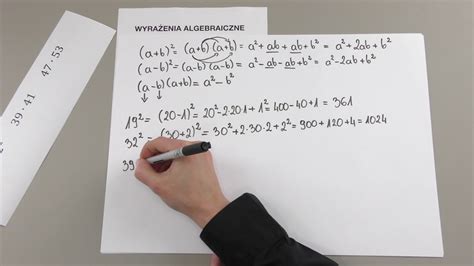 WYRAŻENIA ALGEBRAICZNE
(a+b)² = (a+b)(a+b) = a² + ab + ab + b² = a² + 2ab + b²
(a-b)² = (a-b)(a-b) = a² - ab - ab + b² = a² - 2ab + b²
(a-b)(a+b) = a² - b²
↓ ↓
19² = (20-1)² = 20² - 2·20·1 + 1² = 400 - 40 + 1 = 361
32² = (30+2)² = 30² + 2·30·2 + 2² = 900 + 120 + 4 = 1024
39
39·41 47·53